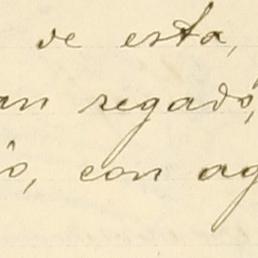 de esta,
an regado,
o, con ag